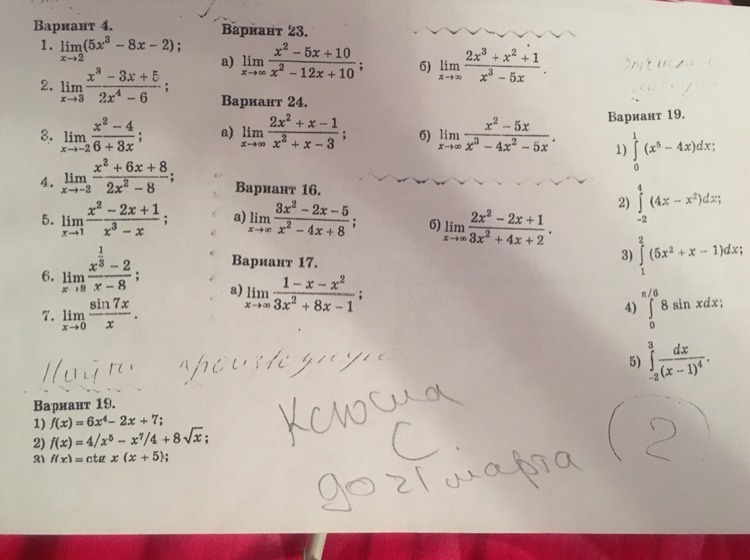 Вариант 4.
1. lim(5x³ − 8x − 2);
x→2
2. lim (x³ − 3x + 5)/(2x⁴ − 6);
x→3
3. lim (x² − 4)/(6 + 3x);
x→−2
4. lim (x² + 6x + 8)/(2x² − 8);
x→−2
5. lim (x² − 2x + 1)/(x³ − x);
x→1
6. lim (x^(1/3) − 2)/(x − 8);
x→8
7. lim (sin 7x)/x.
x→0
Вариант 23.
а) lim (x² − 5x + 10)/(x² − 12x + 10);
x→∞
б) lim (2x³ + x² + 1)/(x³ − 5x).
x→∞
Вариант 24.
а) lim (2x² + x − 1)/(x² + x − 3);
x→∞
б) lim (x² − 5x)/(x³ − 4x² − 5x).
x→∞
Вариант 16.
а) lim (3x² − 2x − 5)/(x² − 4x + 8);
x→∞
б) lim (2x² − 2x + 1)/(3x² + 4x + 2).
x→∞
Вариант 17.
а) lim (1 − x − x²)/(3x² + 8x − 1);
x→∞
Вариант 19.
1) ∫₀¹ (x⁵ − 4x)dx;
2) ∫₋₂⁴ (4x − x²)dx;
3) ∫₁² (5x² + x − 1)dx;
4) ∫₀^(π/6) 8 sin xdx;
5) ∫₋₂³ dx/(x − 1)⁴.
Найти производную
Вариант 19.
1) f(x) = 6x⁴ − 2x + 7;
2) f(x) = 4/x⁵ − x⁷/4 + 8√x;
3) f(x) = ctg x (x + 5);
С
до 21 марта
2